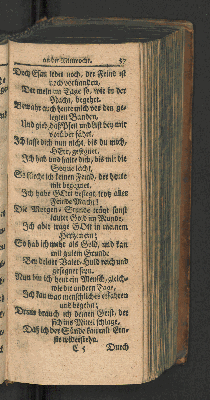 an der Mittwoche. 57
Doch Esau lebet noch, der Feind ist
noch vorhanden,
Der mein am Tage so, wie in der
Nacht, begehrt.
Bewahr auch heute mich vor den
legten Banden,
Und gieb, daß List bey mir
vorüber fährt.
Ich lasse dich nun nicht, bis du mich,
HErr, gesegnet.
Ich hab und halte dich, bis mir die
Sonne lacht,
So fürcht ich keinen Feind, der heute
mir begegnet.
Ich habe GOtt besiegt, trotz aller
Feinde Macht!
Die Morgen-Stunde trägt sonst
lauter Gold im Munde,
Ich aber trage GOtt in meinem
Hertzen;
So hab ich mehr als Gold, und kan
mit gutem Grunde
Bey dieser Vater-Huld reich und
gesegnet seyn.
Nun bin ich heut ein Mensch, gleich-
wie die andern Tage,
Ich kan was menschliches erfahren
und begehn;
Drum brauch ich deinen Geist, der
sich ins Mittel schlage,
Daß ich der Sünde kan mit Ern-
ste widerstehn.
C 5 Durch